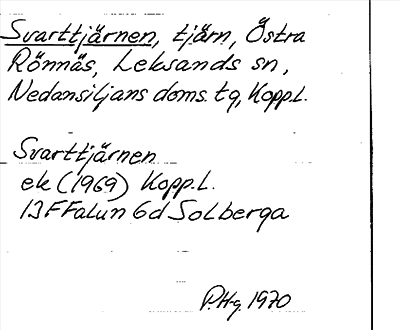 Svarttjärnen, tjärn, Östra
Rönnäs, Leksands sn,
Nedansiljans doms. tg, Kopp.L.
Svarttjärnen
ek (1969) Kopp.L.
13F Falun 6d Solberga
P.Hg. 1970